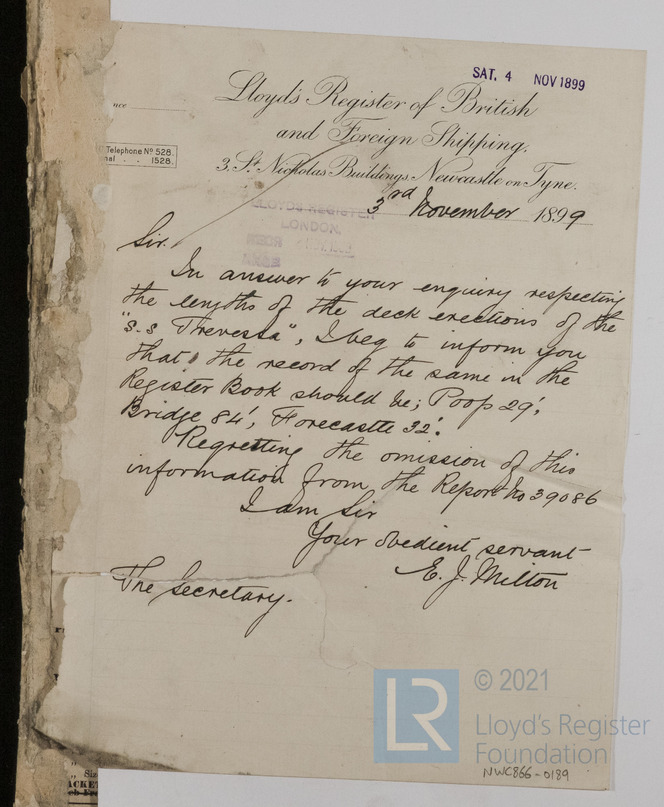 SAT. 4 NOV 1899
Lloyd's Register of British
and Foreign Shipping.
Telephone Nº 528.
1528.
3, St. Nicholas Buildings, Newcastle on Tyne.
3rd November 1899
LLOYD'S REGISTER
LONDON.
Sir.
In answer to your enquiry respecting
the lengths of the deck erections of the
"s.s Trevessa", I beg to inform you
that the record of the same in the
Register Book should be; Poop 29',
Bridge 84', Forecastle 32'.
Regretting the omission of this
information from the Report No 39086
I am Sir
Your obedient servant
E. J. Milton
The Secretary.
LR
© 2021
Lloyd's Register
Foundation
NWC866-0189